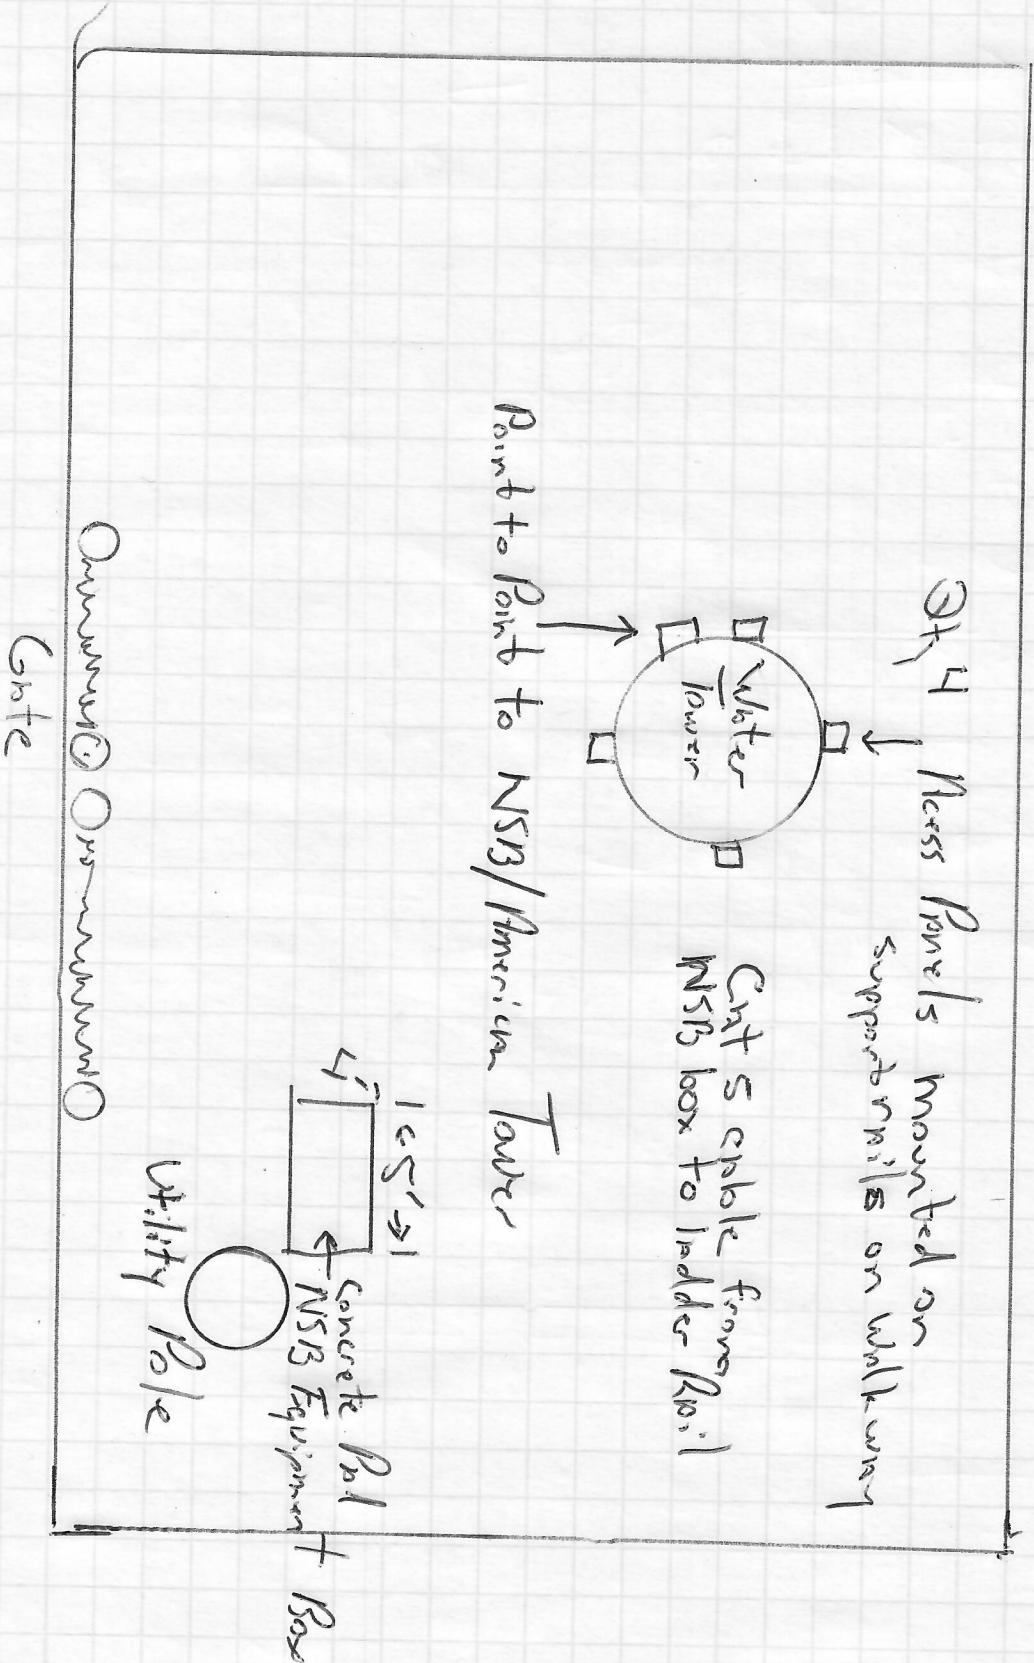 Qty 4 Access Panels mounted on
support rails on Walkway
Water
Tower
Cat 5 cable from
NSB box to ladder Rail
Point to Point to NSB/American Tower
5'
4'
Concrete Pad
NSB Equipment Box
Utility Pole
Gate